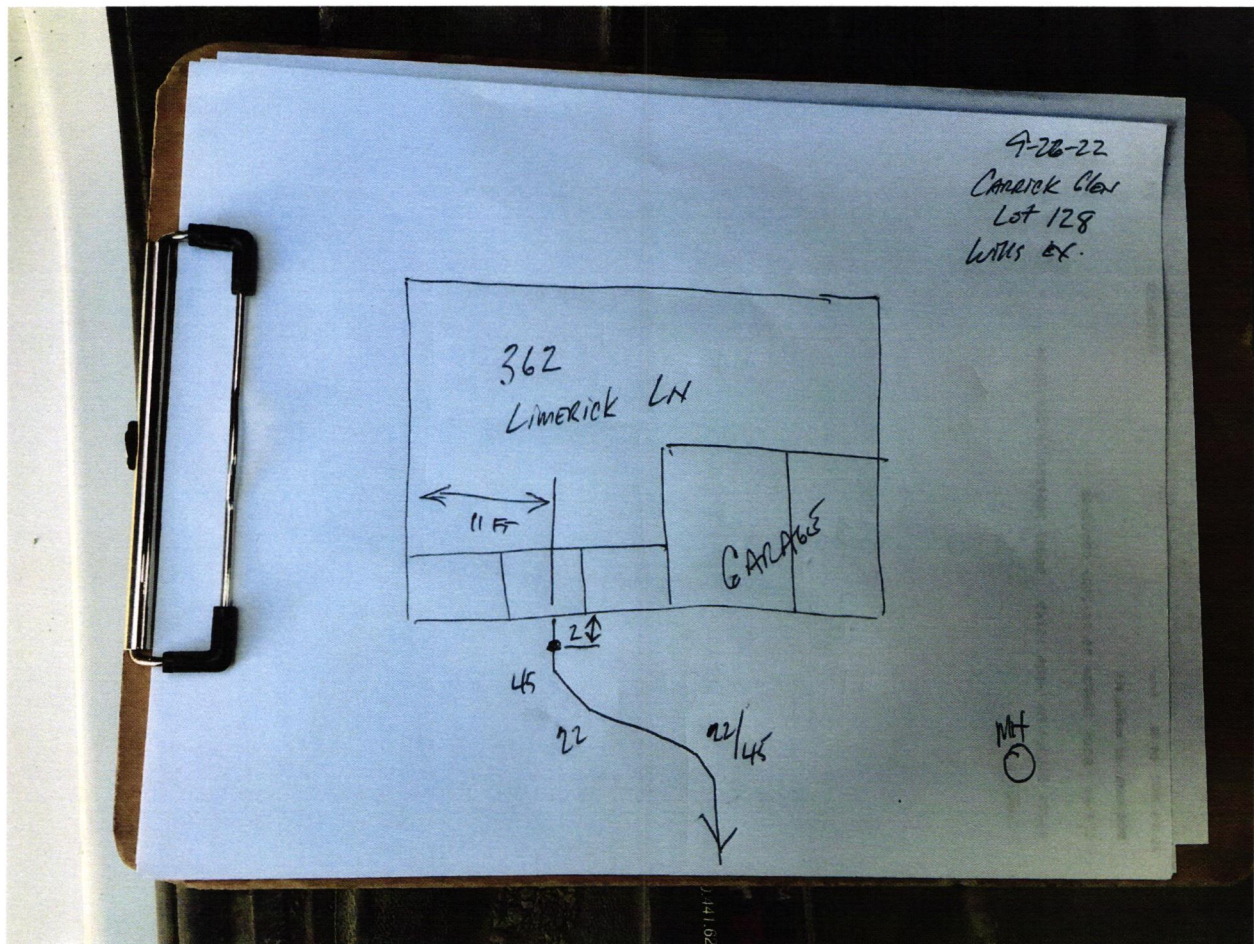 9-28-22
CARRICK GLEN
Lot 128
Wills EX.
362
LIMERICK LN
11 FT
GARAGE
2
45
22
22/45
MH